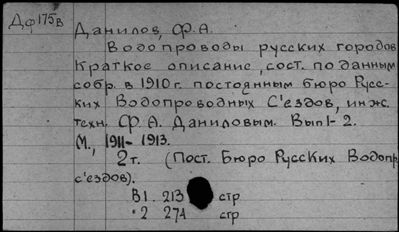 Дф 175в
Данилов, Ф.А.
Водопроводы русских городов
Краткое описание, сост. по данным
собр. в 1910 г. постоянным бюро Русс-
ких Водопроводных С'ездов, инж.
техн. Ф. А. Даниловым. Вып 1-2.
М., 1911-1913.
2 т. (Пост. Бюро Русских Водопр.
с'ездов).
В1. 213 стр
" 2 274 стр